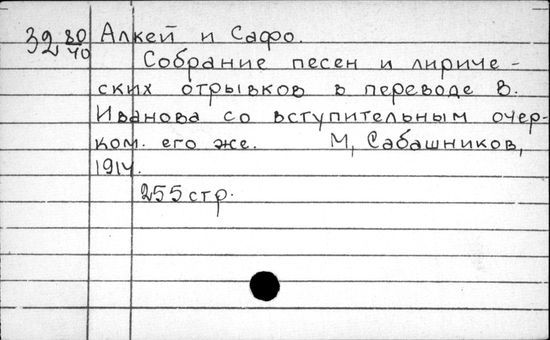 32 80/40 Алкей и Сафо.
Собрание песен и лириче-
ских отрывков в переводе В.
Иванова со вступительным очер-
ком. его же. М, Сабашников,
1914.
255 стр.